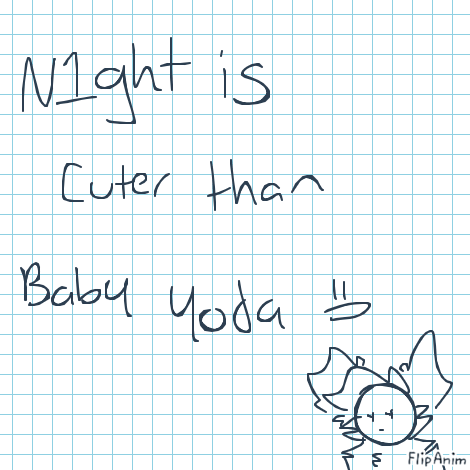 N1ght is
Cuter than
Baby Yoda =)
FlipAnim